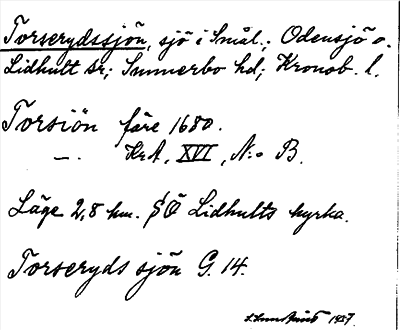 Torserydssjön, sjö i Smål.; Odensjö o.
Lidhult sr; Sunnerbo hd; Kronob. l.
Torsiön före 1680.
—.— KrA, XVI, N:o B.
Läge 2,8 km. SÖ Lidhults kyrka.
Torseryds sjön G. 14.
1937.